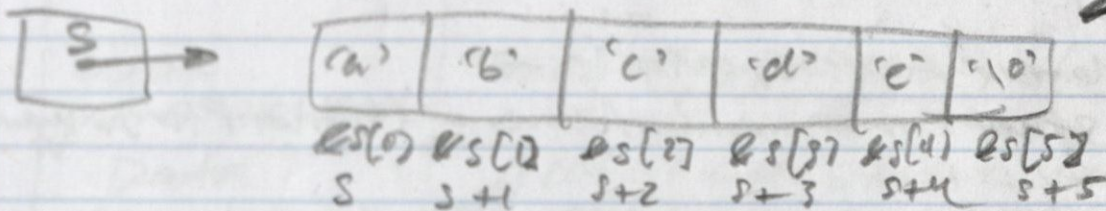 s 'a' 'b' 'c' 'd' 'e' '\0'
&s[0] &s[1] &s[2] &s[3] &s[4] &s[5]
s s+1 s+2 s+3 s+4 s+5